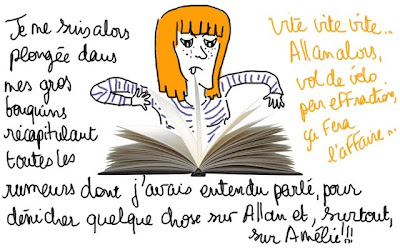 Je me suis alors
plongée dans
mes gros
bouquins
récapitulant
toutes les
rumeurs dont j'avais entendu parlé, pour
dénicher quelque chose sur Allan et, surtout,
sur Amélie!!!
Vite vite vite...
Allan alors,
vol de vélo
par effraction,
ça fera
l'affaire...